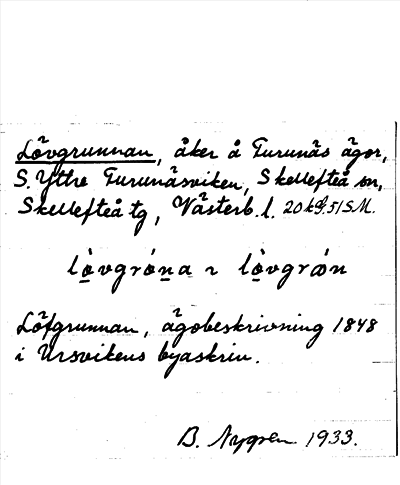 Lövgrunnan, åker å Furunäs ägor,
S. Yttre Furunäsviken, Skellefteå sn,
Skellefteå tg, Västerb. l. 20 kG. 51 SM.
lövgróna ~ lövgrón
Löfgrunnan, ägobeskrivning 1848
i Ursvikens byaskrin.
B. Nygren 1933.